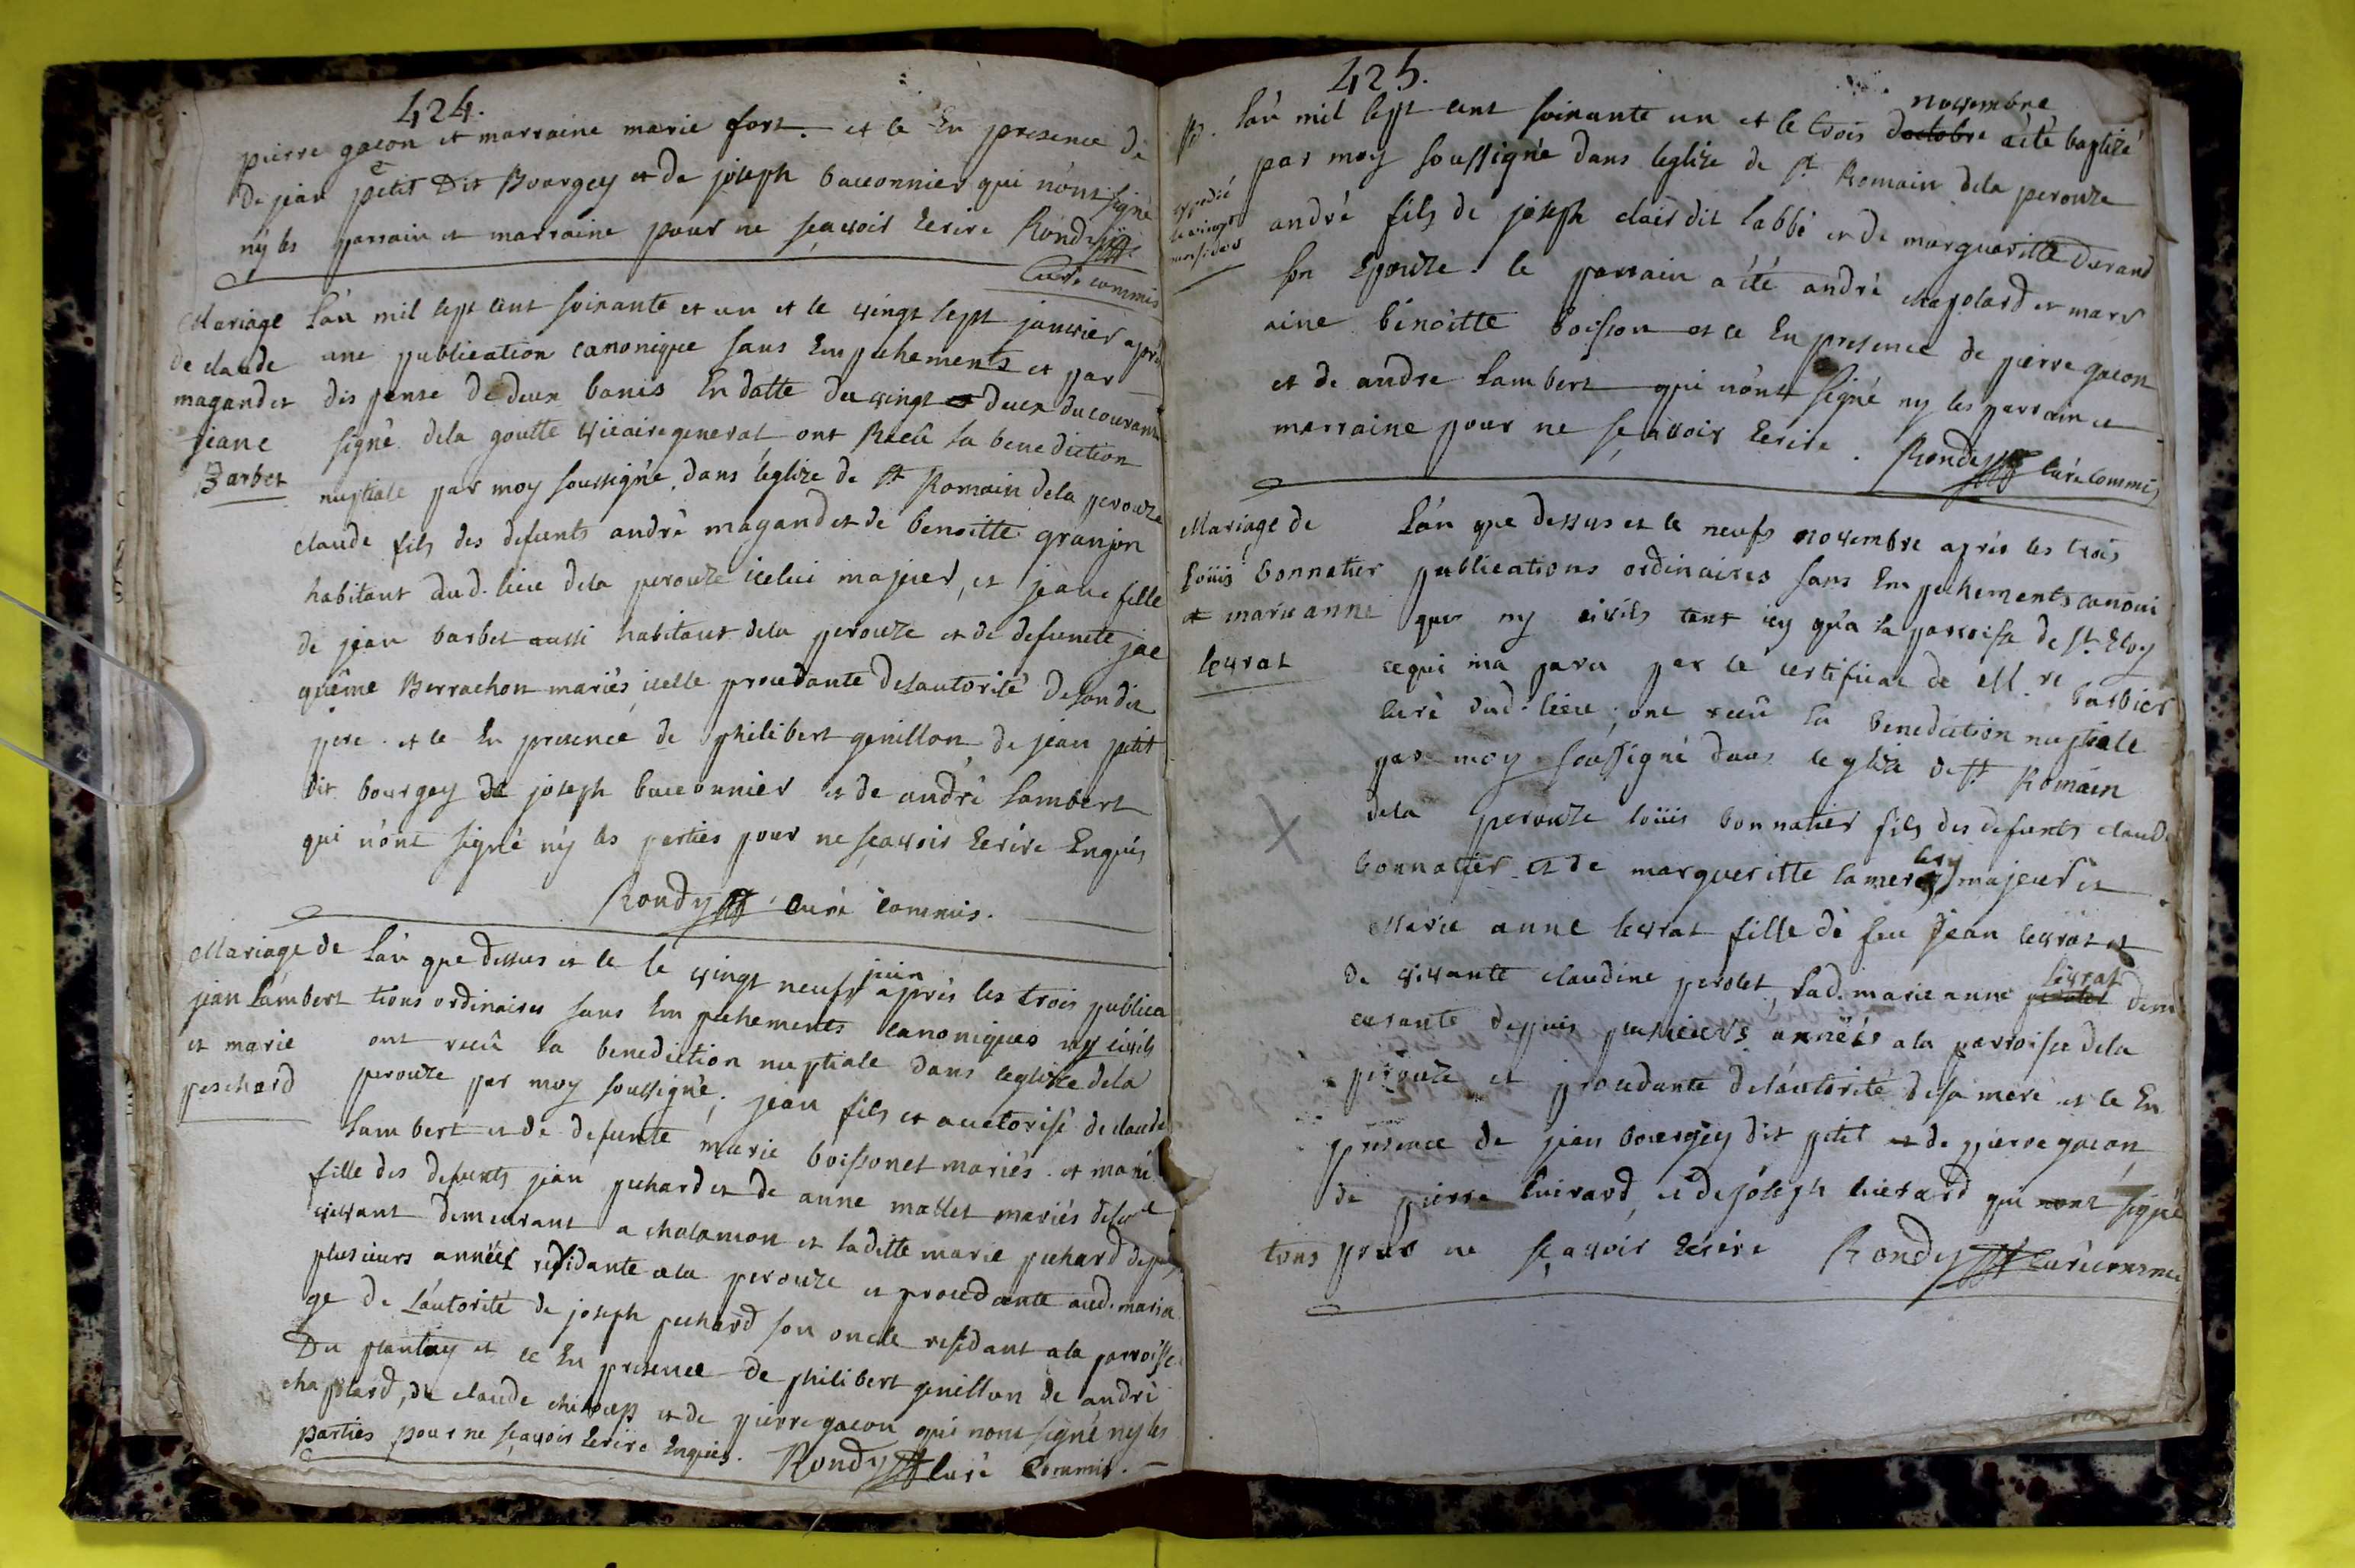 424.
pierre gacon et marraine marie fort. et ce En presence de
de jean petit dit Bourgey et de joseph baconnier qui n'ont signé
ny les parrain et marraine pour ne sçavoir Ecrire Rondy
Curé commis
Mariage
de claude
magand et
jeane
Barbet
L'an mil sept cent soixante et un et le vingt sept janvier après
une publication canonique sans Empechements et par
dispense de deux banis En datte du vingt deux du courant
signé dela goutte vicaire general ont Recû la benediction
nuptiale par moy soussigné dans leglize de St Romain dela perouze
claude fils des defunts andré magand et de benoitte granjon
habitant dud. lieu dela perouze icelui majeur, et jeane fille
de jean barbet aussi habitant dela perouze et de defuncte jac
quême Berrachon mariés, icelle procedante de l'autorité de son dit
pere. et ce En presence de philibert genillon, de jean petit
dit bourgey de joseph baconnier et de andré lambert
qui n'ont signé n'y les parties pour ne sçavoir Ecrire Enquis
Rondy curé commis.
Mariage de
jean Lambert
et marie
peschard
L'an que dessus et le le vingt neuf juin après les trois publica
tions ordinaires sans Empechements canoniques ny civils
ont recû la benediction nuptiale dans leglize dela
perouze par moy soussigné, jean fils et auctorisé de claude
Lambert et de defunte marie boissonet mariés. et marie
fille des defunts jean pechard et de anne mallet mariés
vivant demeurant a chalamon et laditte marie pechard depuis
plusieurs années residante ala perouze et procedante aud. maria
ge de l'autorité de joseph pechard son oncle residant ala parroisse
Du plantay et ce En presence de philibert genillon de andré
chapolard, de claude et de pierre gacon qui n'ont signé ny les
parties pour ne sçavoir Ecrire Enquis. Rondy curé commis.
425.
L'an mil sept cent soixante un et le trois doctobre novembre a été baptizé
par moy soussigné dans leglize de St Romain dela perouze
expedié
andré fils de joseph clair dit labbé et de margueritte durand
son Epouze. le parrain a été andré chapolard et marr
aine benoitte boisson et ce En presence de pierre gacon
et de andre Lambert qui n'ont signé ny les parrain et
marraine pour ne sçavoir Ecrire. Rondy curé commis
Mariage de
Loüis bonnatier
et marie anne
levrat
L'an que dessus et le neufs novembre après les trois
publications ordinaires sans Empechements canoni
ques ny civils tant icy qu'a la parroisse de St Eloy
ce qui ma paru par le certificat de M.re barbier
curé dud. lieu, ont recû la benediction nuptiale
par moy soussigné dans leglize de St Romain
dela perouze loüis bonnatier fils des defunts claude
bonnatier et de margueritte majeur et
Marie anne levrat fille de feu Jean levrat et
de vivante claudine perolet, lad. marie anne perolet levrat dem
eurante depuis plusieurs années a la parroisse dela
perouze et procedante de l'autorité de sa mere et ce En
presence de jean bourgey dit petit et de pierre gacon,
de pierre cuirard, et de joseph cuirard qui n'ont signé
tous pour ne sçavoir Ecrire Rondy curé commis